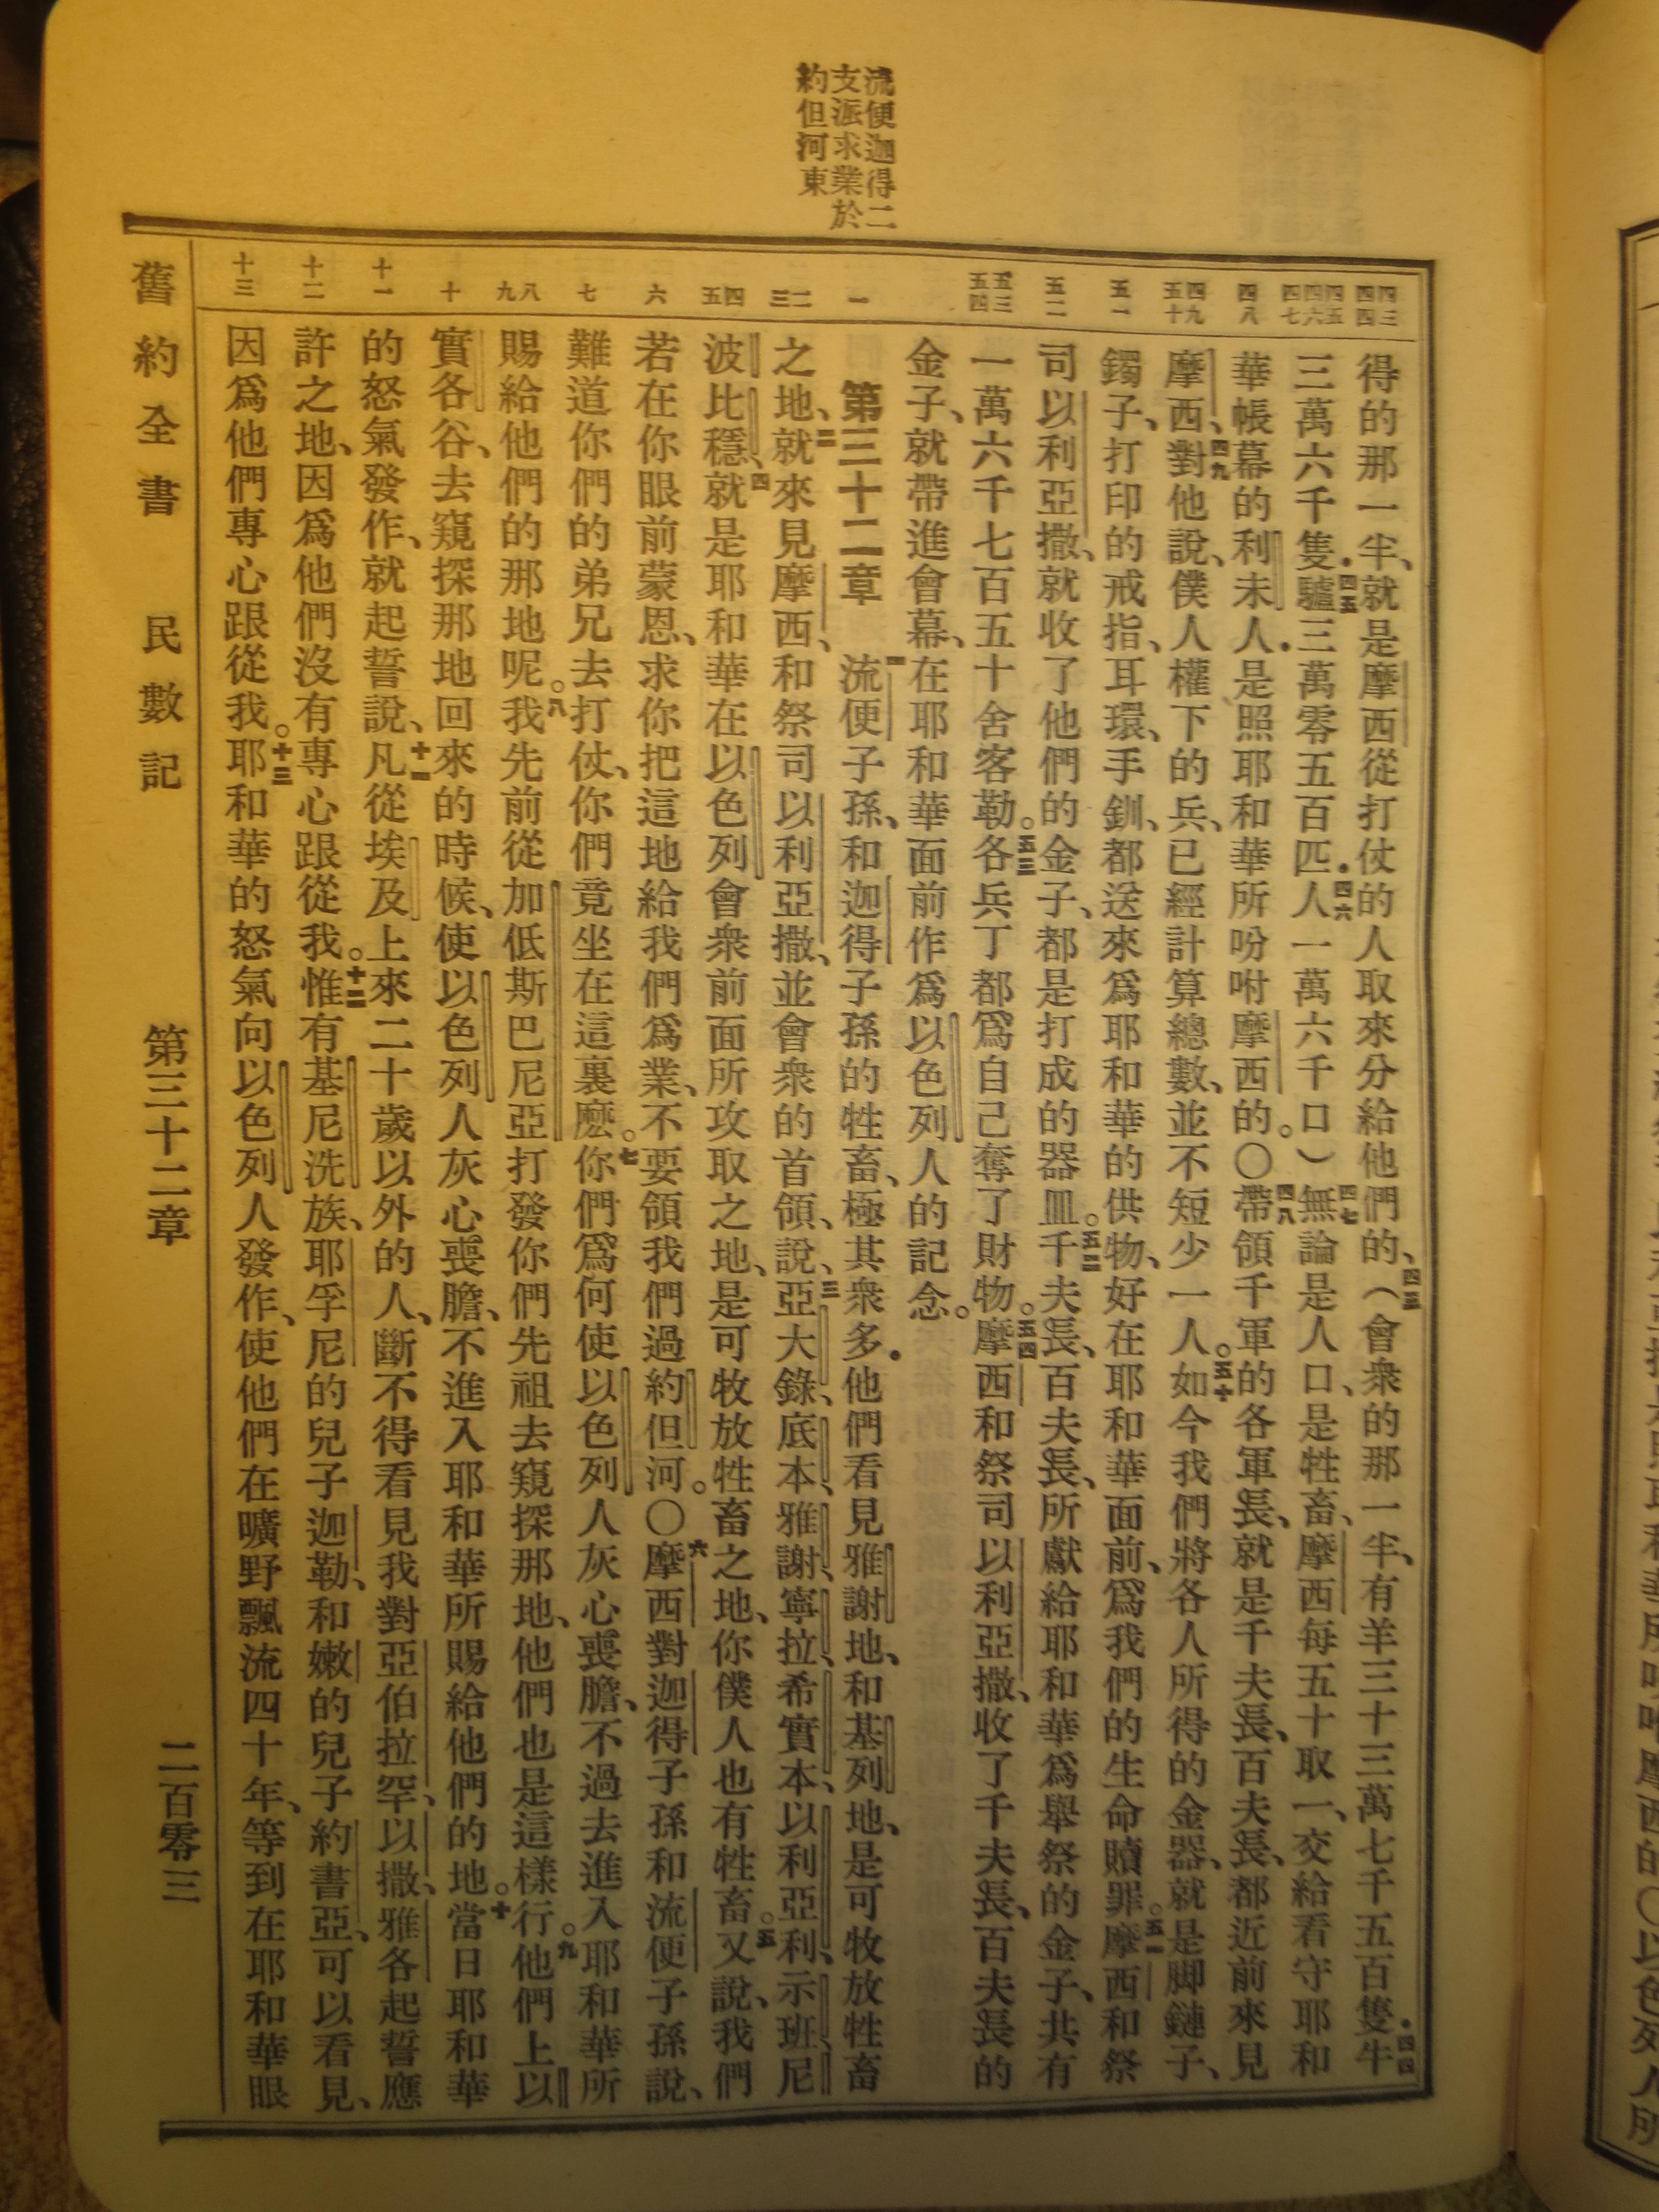 流便迦得二
支派求業於
約但河東
四三 四四
四五 四六 四七
四八
四九 五十
五一
五二
五三 五四
一
二 三
四 五
六
七
八 九
十
十一
十二
十三
得的那一半、就是摩西從打仗的人取來分給他們的、四三（會衆的那一半、有羊三十三萬七千五百隻．四四牛
三萬六千隻．四五驢三萬零五百匹．四六人一萬六千口）四七無論是人口、是牲畜、摩西每五十取一、交給看守耶和
華帳幕的利未人．是照耶和華所吩咐摩西的。〇四八帶領千軍的各軍長、就是千夫長、百夫長、都近前來見
摩西、四九對他說、僕人權下的兵、已經計算總數、並不短少一人。五十如今我們將各人所得的金器、就是脚鏈子、
鐲子、打印的戒指、耳環、手釧、都送來爲耶和華的供物、好在耶和華面前、爲我們的生命贖罪。五一摩西和祭
司以利亞撒、就收了他們的金子、都是打成的器皿。五二千夫長、百夫長、所獻給耶和華爲舉祭的金子、共有
一萬六千七百五十舍客勒。五三各兵丁都爲自己奪了財物。五四摩西和祭司以利亞撒、收了千夫長、百夫長的
金子、就帶進會幕、在耶和華面前作爲以色列人的記念。
第三十二章 一流便子孫、和迦得子孫的牲畜、極其衆多．他們看見雅謝地、和基列地、是可牧放牲畜
之地、二就來見摩西、和祭司以利亞撒、並會衆的首領、說、三亞大錄、底本、雅謝、寧拉、希實本、以利亞利、示班、尼
波、比穩、四就是耶和華在以色列會衆前面所攻取之地、是可牧放牲畜之地、你僕人也有牲畜。五又說、我們
若在你眼前蒙恩、求你把這地給我們爲業、不要領我們過約但河。〇六摩西對迦得子孫和流便子孫說、
難道你們的弟兄去打仗、你們竟坐在這裏麽。七你們爲何使以色列人灰心喪膽、不過去進入耶和華所
賜給他們的那地呢。八我先前從加低斯巴尼亞打發你們先祖去窺探那地、他們也是這樣行。九他們上以
實各谷、去窺探那地回來的時候、使以色列人灰心喪膽、不進入耶和華所賜給他們的地。十當日耶和華
的怒氣發作、就起誓說、十一凡從埃及上來二十歲以外的人、斷不得看見我對亞伯拉罕、以撒、雅各起誓應
許之地、因爲他們沒有專心跟從我。十二惟有基尼洗族、耶孚尼的兒子迦勒、和嫩的兒子約書亞、可以看見、
因爲他們專心跟從我。十三耶和華的怒氣向以色列人發作、使他們在曠野飄流四十年、等到在耶和華眼
舊約全書 民數記 第三十二章 二百零三